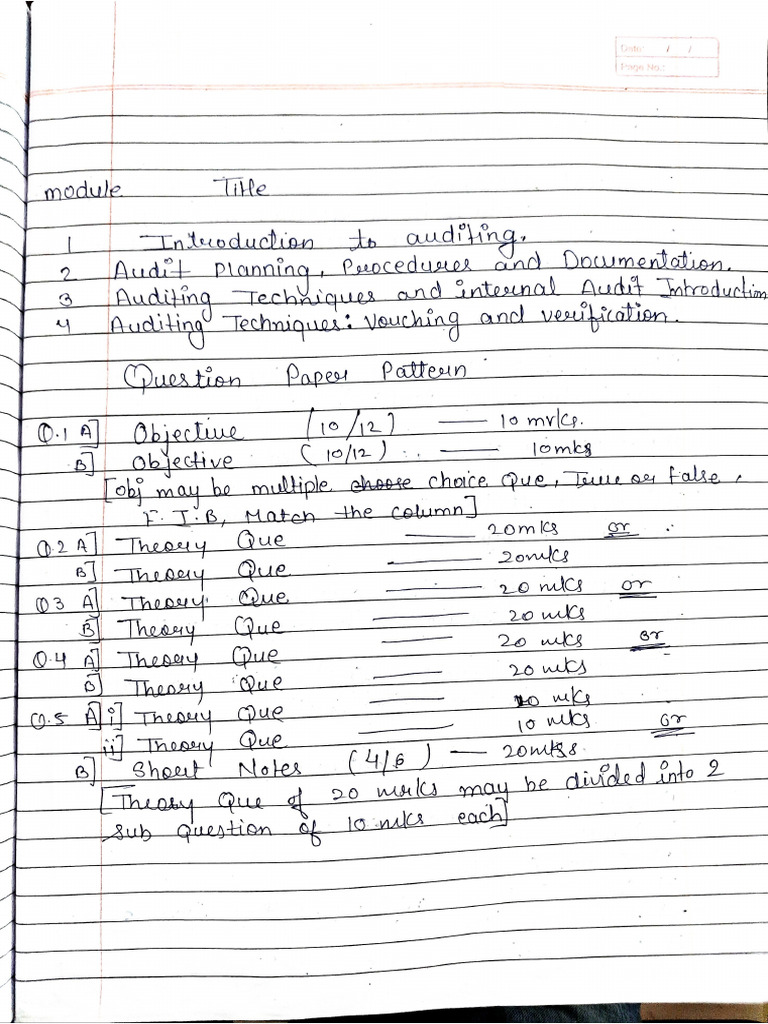 Date: / /
Page No.:
module Title
1 Introduction to auditing.
2 Audit planning, Procedures and Documentation.
3 Auditing Techniques and internal Audit Introduction
4 Auditing Techniques: Vouching and verification.
Question Paper Pattern
Q.1 A] Objective (10/12) — 10 mrks.
B] Objective (10/12) .. — 10mks
[obj may be multiple choose choice Que, True or false,
F.I.B, Match the column]
Q.2 A] Theory Que — 20mks or
B] Theory Que — 20mks
Q3 A] Theory Que — 20 mks or
B] Theory Que — 20 mks
Q.4 A] Theory Que — 20 mks or
B] Theory Que — 20 mks
Q.5 A] i] Theory Que — 10 mks
ii] Theory Que — 10 mks or
B] Short Notes (4/6) — 20mks.
[Theory Que of 20 mrks may be divided into 2
sub question of 10 mks each]